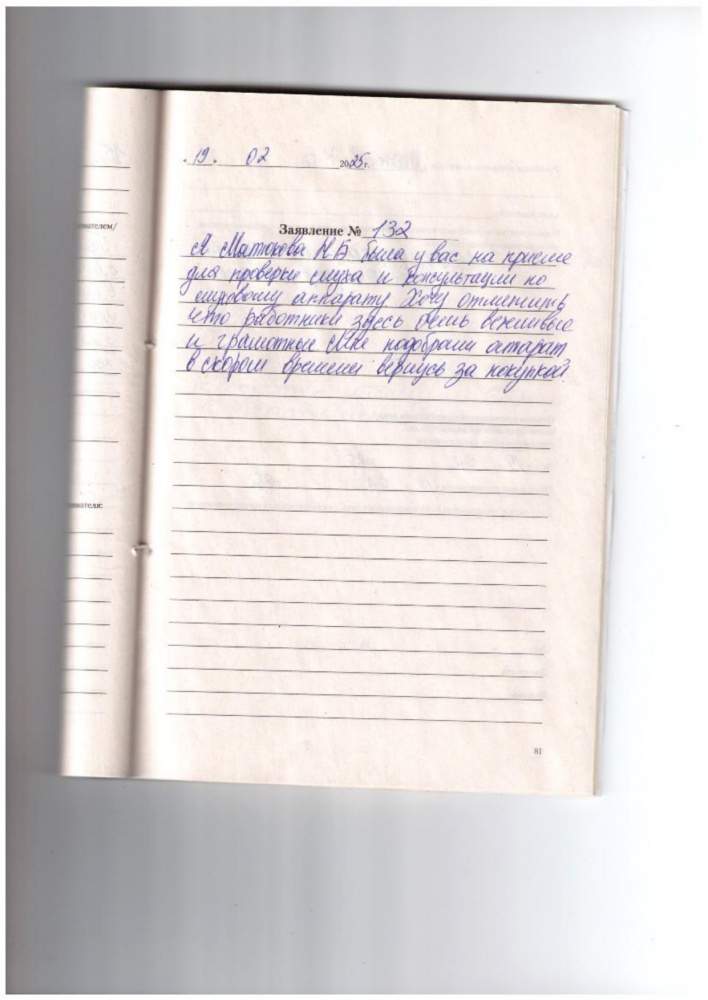 „ 19 „ 02 2025г.
Заявление № 132
Я Матюхова Н.Б была у вас на приеме
для проверки слуха и консультации по
слуховому аппарату Хочу отметить
что работники здесь очень вежливые
и грамотные Мне подобрали аппарат
в скором времени вернусь за покупкой.
ователем/
ователя:
81